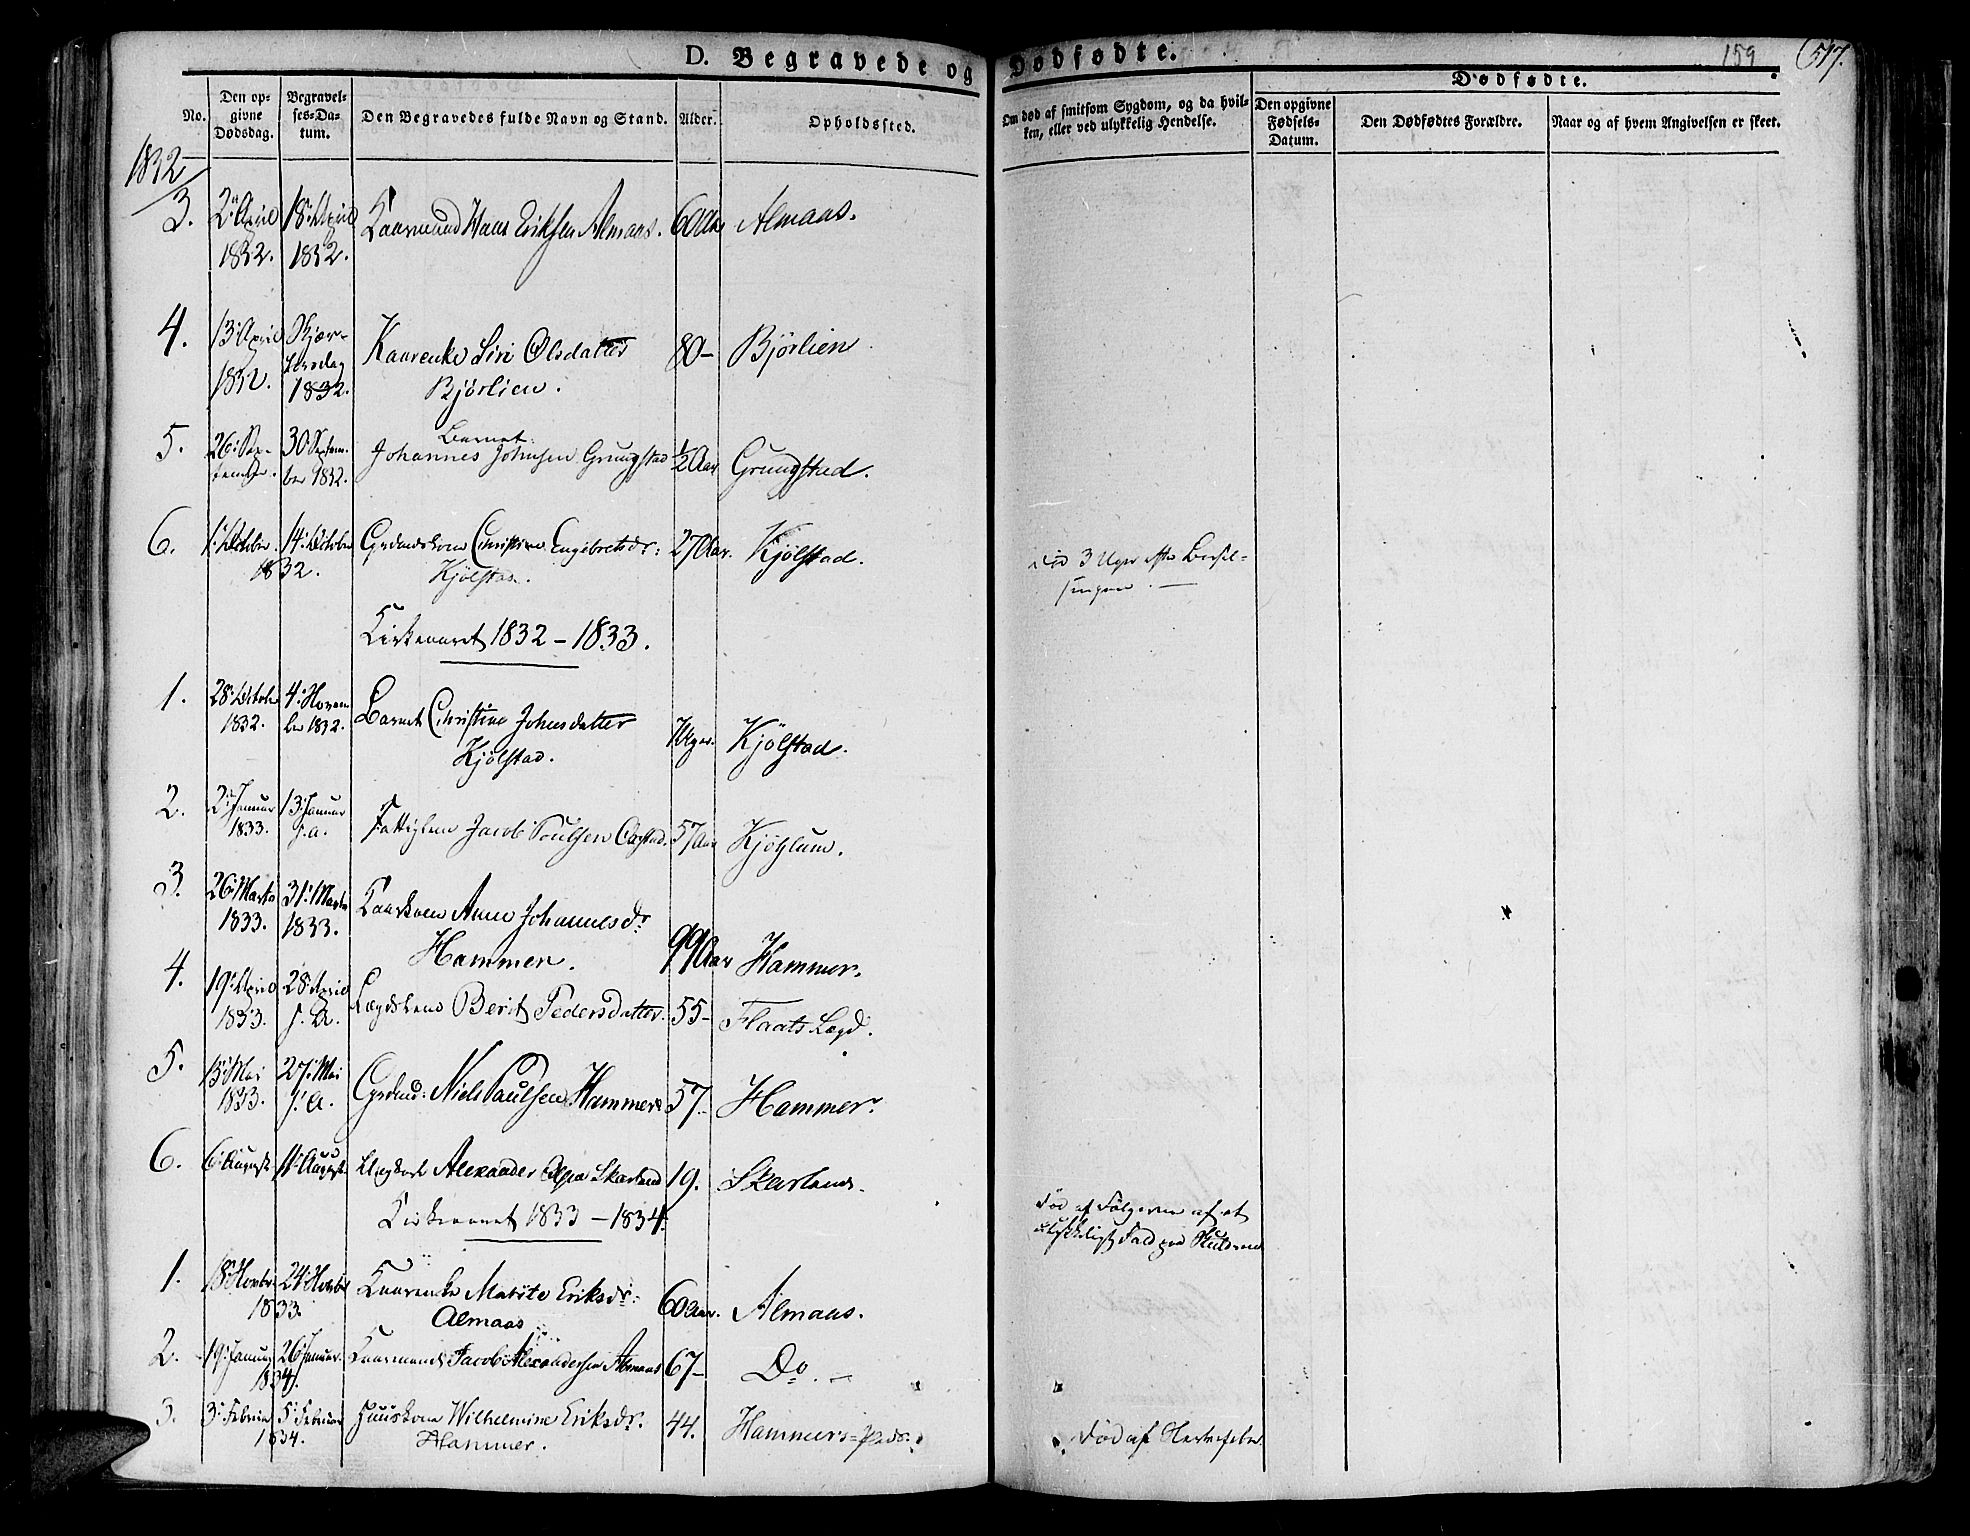 D. Begravede og Dødfødte.
159
517.
No.
Den op-
givne
Dødsdag.
Begravel-
ses-Da-
tum.
Den Begravedes fulde Navn og Stand.
Alder.
Opholdssted.
Om død af smitsom Sygdom, og da hvil-
ken, eller ved ulykkelig Hendelse.
Dødfødte.
Den opgivne
Fødsels-
Datum.
Den Dødfødtes Forældre.
Naar og af hvem Angivelsen er skeet.
1832
3. 2 April 18 April Kaarmand Hans Eriksen Almaas. 60 Aar Almaas.
1832. 1832.
4. 13 April Kaarenke Siri Olsdatter 80- Bjørlien
1832. 1832. Bjørlien.
5. 26 Sep- 30 Septem- Barnet
tember. ber 1832. Johannes Johnsen Grungstad ½ Aar Grungstad.
6. 1 October 14 October Grdmdskone Christine Engebretsdr: 27 Aar. Kjølstad.
1832. Kjølstad.
3 Uger efter Barsel-
sengen. —
Kirkeaaret 1832 - 1833.
1. 28 October 4 Novem- Barnet Christine Johnsdatter 7 Uger. Kjølstad.
1832. ber 1832. Kjølstad.
2. 2 Januar 13 Januar Fattiglem Jacob Poulsen 57 Aar Kjøglum.
1833. s. a.
3. 26 Marts 31 Marts Kaarkone Anne Johannesdr.
1833. 1833. Hammer. 99 Aar Hammer.
4. 19 April 28 April Lægdslem Berit Pedersdatter. 55- Flaats Lægd.
1833. s. A.
5. 15 Mai 27 Mai Grdmd: Niels Paulsen Hammer 57- Hammer.
1833. s. a.
6. 6 August 11 August Ungkarl Alexander Olsen Skarland 19. Skarland.
Død af Følgerne af et
ulykkeligt Fald paa
Kirkeaaret 1833 - 1834.
1. 18 Novbr 24 Novbr Kaarenke Marite Eriksdr: 60 Aar. Almaas.
1833. Almaas
2. 19 Januar 26 Januar. Kaarmand Jacob Alexandersen Almaas 67- Do. —
1834.
3. 3 Februar 5 Februar Huuskone Wilhelmine Eriksdr. 44. Hammers-
1834. Hammer.
Død af